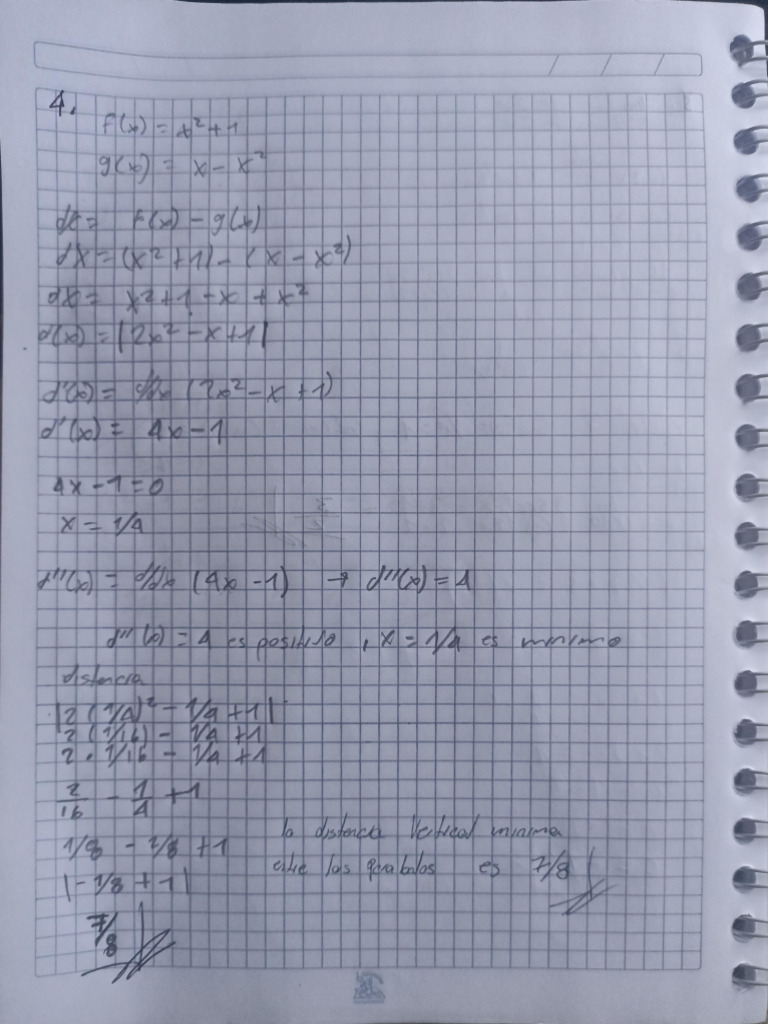 4.
f(x) = x² + 1
g(x) = x - x²
dx = f(x) - g(x)
dx = (x² + 1) - (x - x²)
dx = x² + 1 - x + x²
d(x) = |2x² - x + 1|
d'(x) = d/dx (2x² - x + 1)
d'(x) = 4x - 1
4x - 1 = 0
x = 1/4
d''(x) = d/dx (4x - 1) → d''(x) = 4
d''(x) = 4 es positivo, x = 1/4 es minimo
distancia
|2 (1/4)² - 1/4 + 1|
2 (1/16) - 1/4 + 1
2 · 1/16 - 1/4 + 1
2/16 - 1/4 + 1
1/8 - 2/8 + 1
|-1/8 + 1|
7/8
la distancia vertical minima
entre las parabolas es 7/8